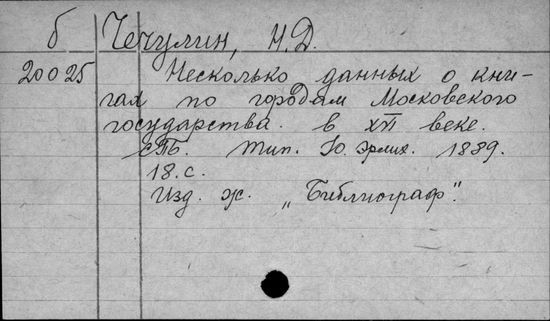 б Чечулин, Н.Д.
20025 Несколько данных о кни-
гах по городам Московского
государства. в XVI веке.
СПБ. Тип. Ю. Эрлих. 1889.
18.с.
Изд. ж. „Библиограф".